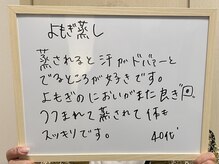 よもぎ蒸し
蒸されると汗がドバァーと
でるところが好きです。
よもぎのにおいがまた良き
つつまれて蒸されて体も
スッキリです。 40代